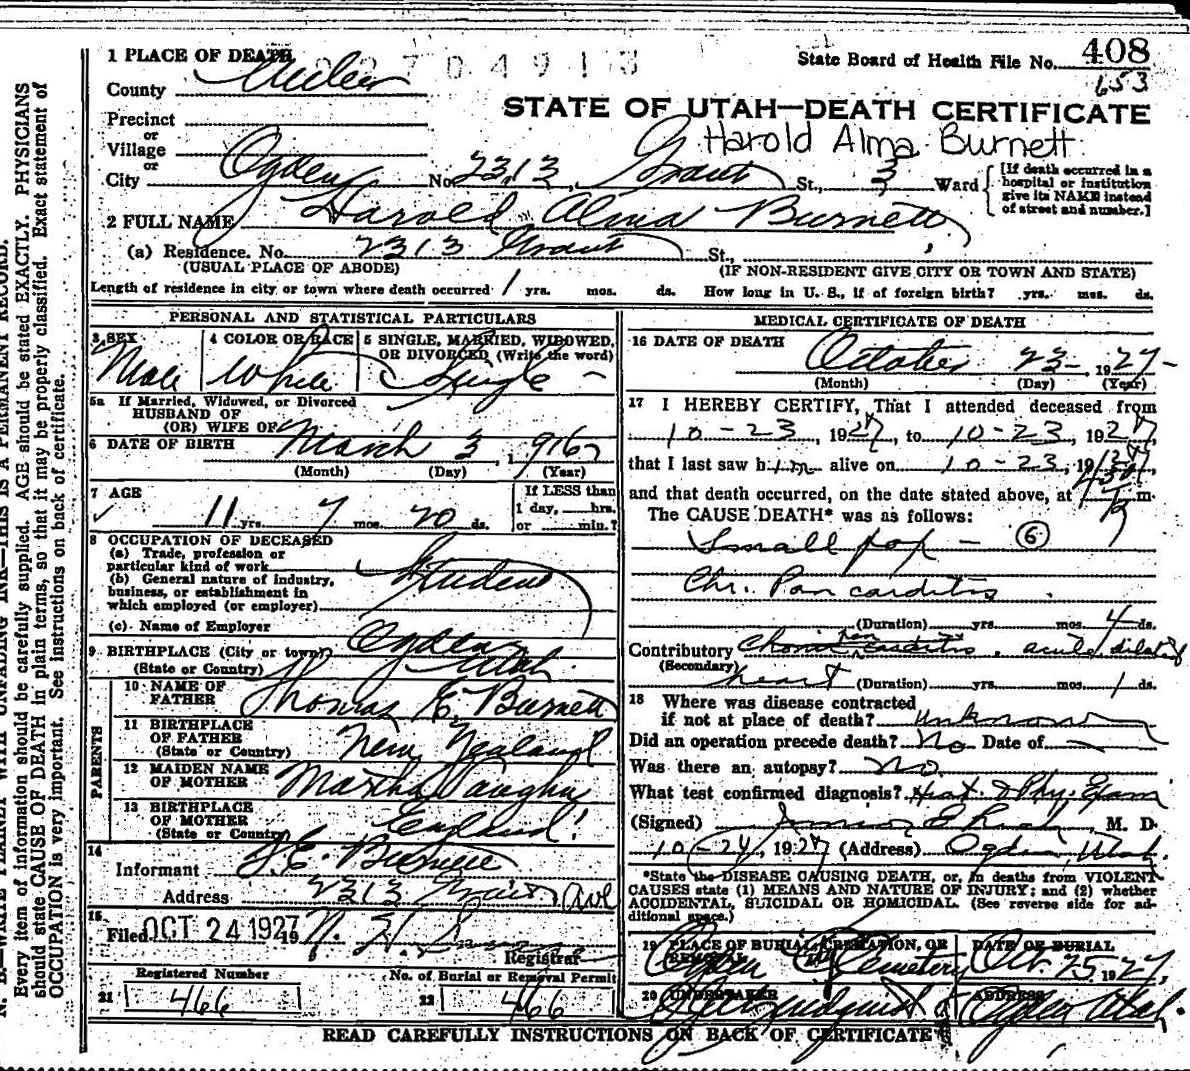 1 PLACE OF DEATH
2704913
State Board of Health File No. 408
653
County Weber
STATE OF UTAH—DEATH CERTIFICATE
Precinct
or
Village
Harold Alma Burnett
or
City Ogden No. 2313, Grant St., 3 Ward
[If death occurred in a hospital or institution give its NAME instead of street and number.]
2 FULL NAME Harold Alma Burnett
(a) Residence. No. 2313 Grant St.,
(USUAL PLACE OF ABODE) (IF NON-RESIDENT GIVE CITY OR TOWN AND STATE)
Length of residence in city or town where death occurred 1 yrs. mos. ds. How long in U. S., if of foreign birth? yrs. mos. ds.
PERSONAL AND STATISTICAL PARTICULARS
3 SEX Male
4 COLOR OR RACE White
5 SINGLE, MARRIED, WIDOWED,
OR DIVORCED (Write the word)
Single
5a If Married, Widowed, or Divorced
HUSBAND OF
(OR) WIFE OF
6 DATE OF BIRTH March 3, 1916
(Month) (Day) (Year)
7 AGE
11 yrs. 7 mos. 20 ds.
If LESS than
1 day, hrs.
or min.?
8 OCCUPATION OF DECEASED
(a) Trade, profession or
particular kind of work Student
(b) General nature of industry,
business, or establishment in
which employed (or employer)
(c) Name of Employer
9 BIRTHPLACE (City or town) Ogden
(State or Country) Utah
PARENTS
10 NAME OF
FATHER Thomas E. Burnett
11 BIRTHPLACE
OF FATHER
(State or Country) New Zealand
12 MAIDEN NAME
OF MOTHER Martha Vaughn
13 BIRTHPLACE
OF MOTHER
(State or Country) England
14
Informant T. E. Burnett
Address 2313 Grant Ave
15
Filed OCT 24 1927 19
Registrar
Registered Number
21 466
No. of Burial or Removal Permit
22 466
MEDICAL CERTIFICATE OF DEATH
16 DATE OF DEATH October 23- 1927-
(Month) (Day) (Year)
17 I HEREBY CERTIFY, That I attended deceased from
10-23, 1927, to 10-23, 1927,
that I last saw him alive on 10-23, 1927,
and that death occurred, on the date stated above, at m.
The CAUSE DEATH* was as follows:
Small pox - 6
Chr. Pancarditis.
(Duration) yrs. mos. 4 ds.
Contributory Chronic Pancarditis, acute dilated
(Secondary) heart (Duration) yrs. mos. 1 ds.
18 Where was disease contracted
if not at place of death? unknown
Did an operation precede death? No Date of
Was there an autopsy? No.
What test confirmed diagnosis? Hist. & Phy. Exam
(Signed) M. D.
10-24, 1927 (Address) Ogden, Utah.
*State the DISEASE CAUSING DEATH, or, in deaths from VIOLENT
CAUSES state (1) MEANS AND NATURE OF INJURY; and (2) whether
ACCIDENTAL, SUICIDAL OR HOMICIDAL. (See reverse side for ad-
ditional space.)
19 PLACE OF BURIAL, CREMATION, OR
REMOVAL
Ogden City Cemetery
DATE OF BURIAL
Oct. 25 1927,
20 UNDERTAKER
ADDRESS
Ogden Utah.
READ CAREFULLY INSTRUCTIONS ON BACK OF CERTIFICATE
N. B.—WRITE PLAINLY WITH UNFADING INK—THIS IS A PERMANENT RECORD.
Every item of information should be carefully supplied. AGE should be stated EXACTLY. PHYSICIANS
should state CAUSE OF DEATH in plain terms, so that it may be properly classified. Exact statement of
OCCUPATION is very important. See instructions on back of certificate.